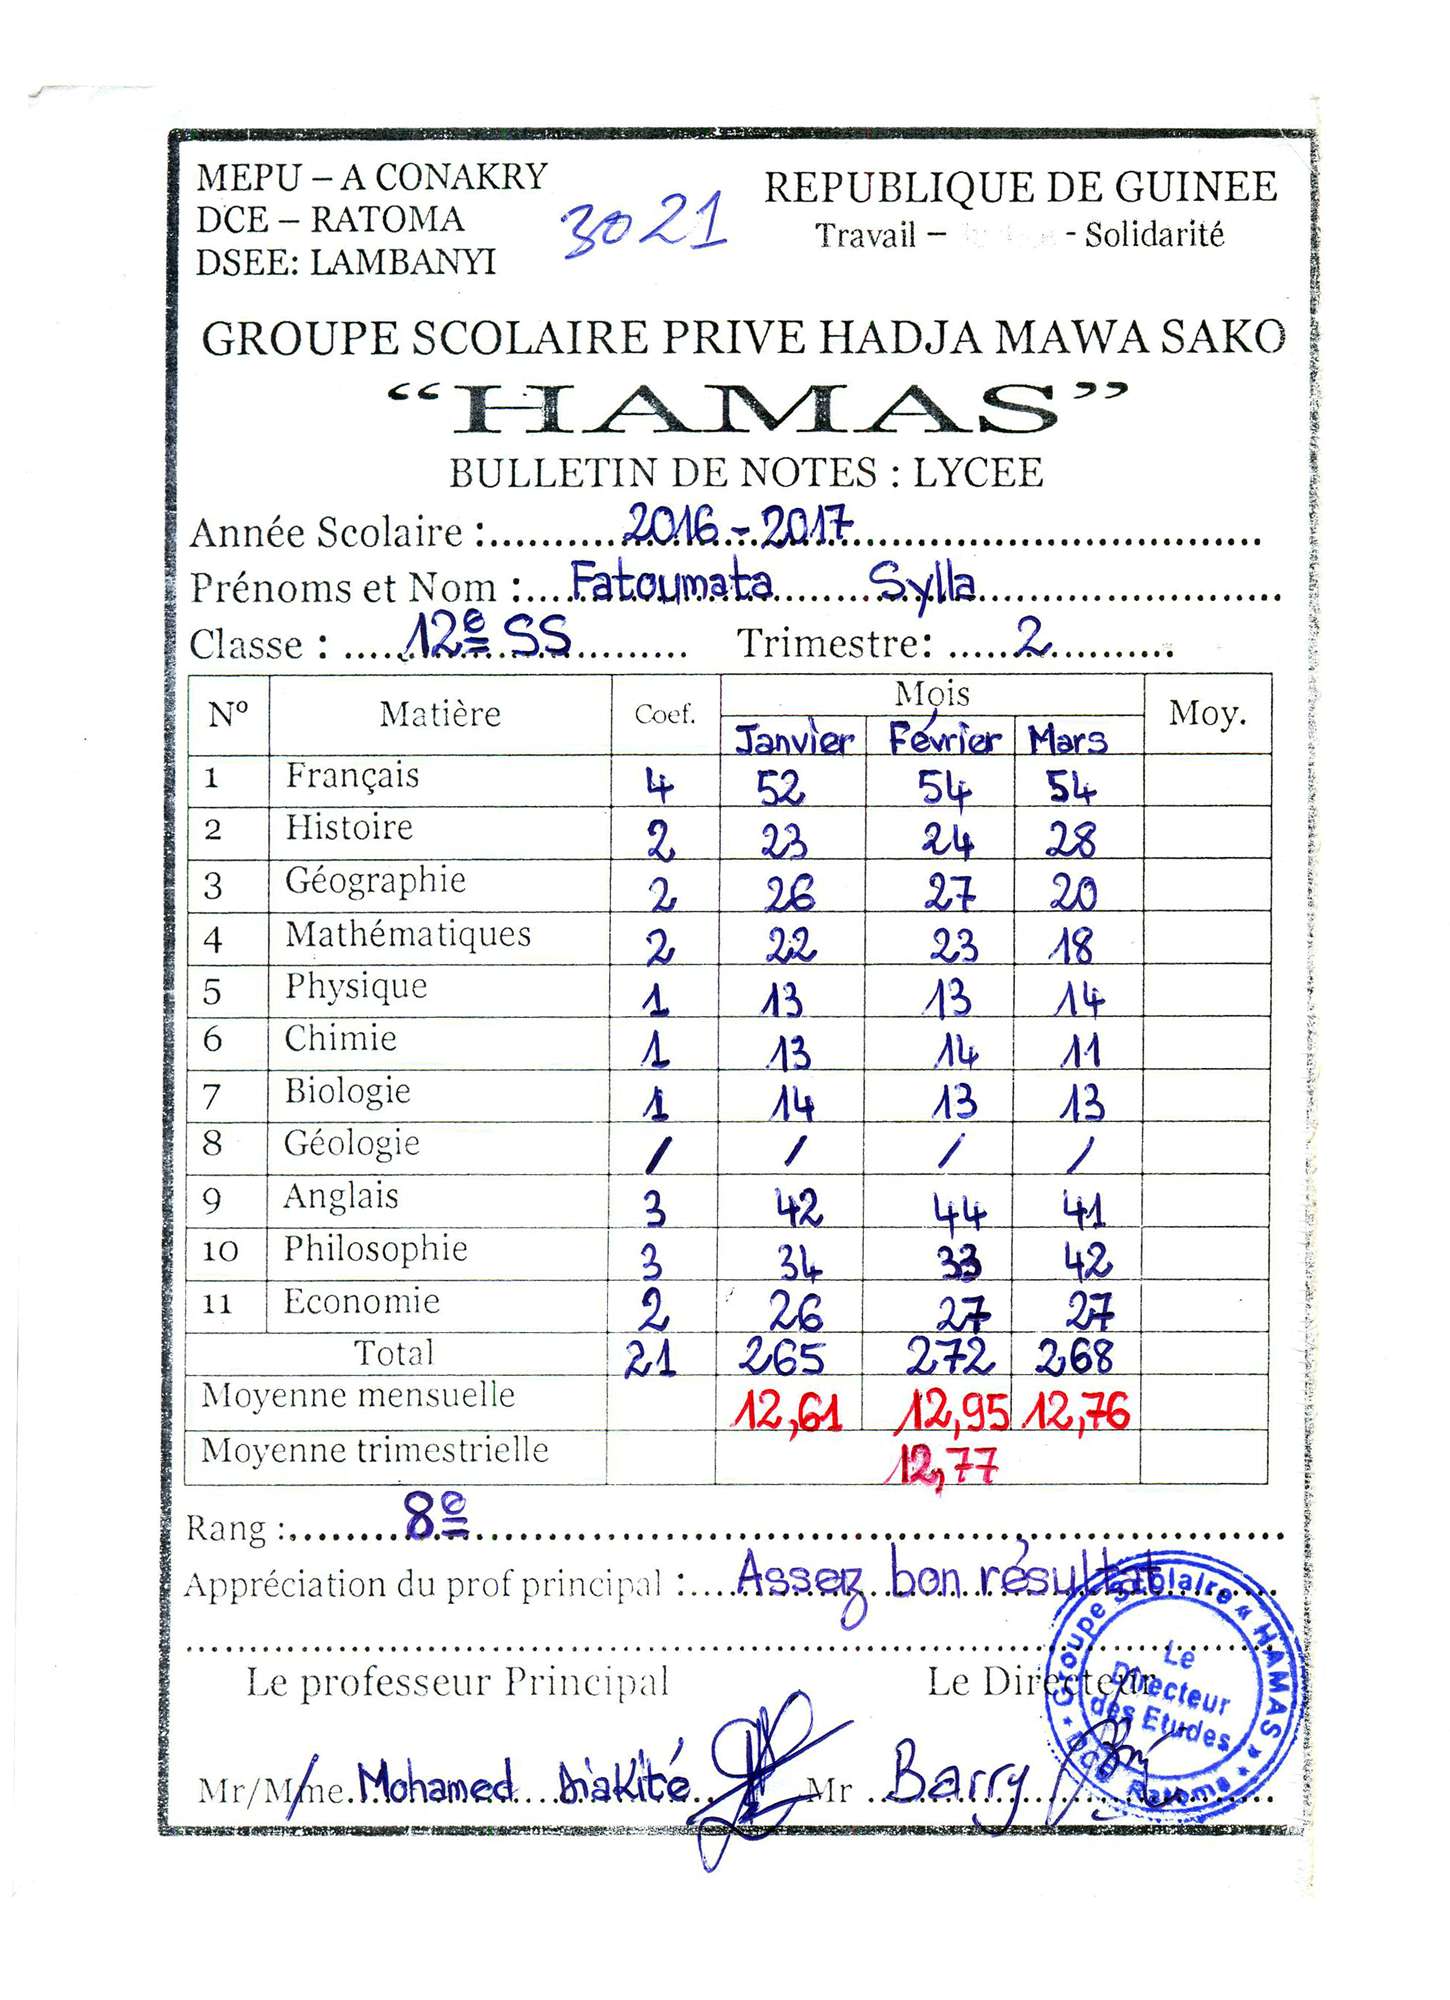 MEPU – A CONAKRY
DCE – RATOMA
DSEE: LAMBANYI
3021
REPUBLIQUE DE GUINEE
Travail – - Solidarité
GROUPE SCOLAIRE PRIVE HADJA MAWA SAKO
“HAMAS”
BULLETIN DE NOTES : LYCEE
Année Scolaire : 2016-2017
Prénoms et Nom : Fatoumata Sylla
Classe : 12e SS Trimestre: 2
N° Matière Coef. Mois Moy.
Janvier Février Mars
1 Français 4 52 54 54
2 Histoire 2 23 24 28
3 Géographie 2 26 27 20
4 Mathématiques 2 22 23 18
5 Physique 1 13 13 14
6 Chimie 1 13 14 11
7 Biologie 1 14 13 13
8 Géologie / / / /
9 Anglais 3 42 44 41
10 Philosophie 3 34 33 42
11 Economie 2 26 27 27
Total 21 265 272 268
Moyenne mensuelle 12,61 12,95 12,76
Moyenne trimestrielle 12,77
Rang : 8e
Appréciation du prof principal : Assez bon résultat
Le professeur Principal Le Directeur
Mr/Mme. Mohamed Diakité Mr Barry
Groupe Scolaire « HAMAS »
Le
Directeur
des Etudes
DCE Ratoma